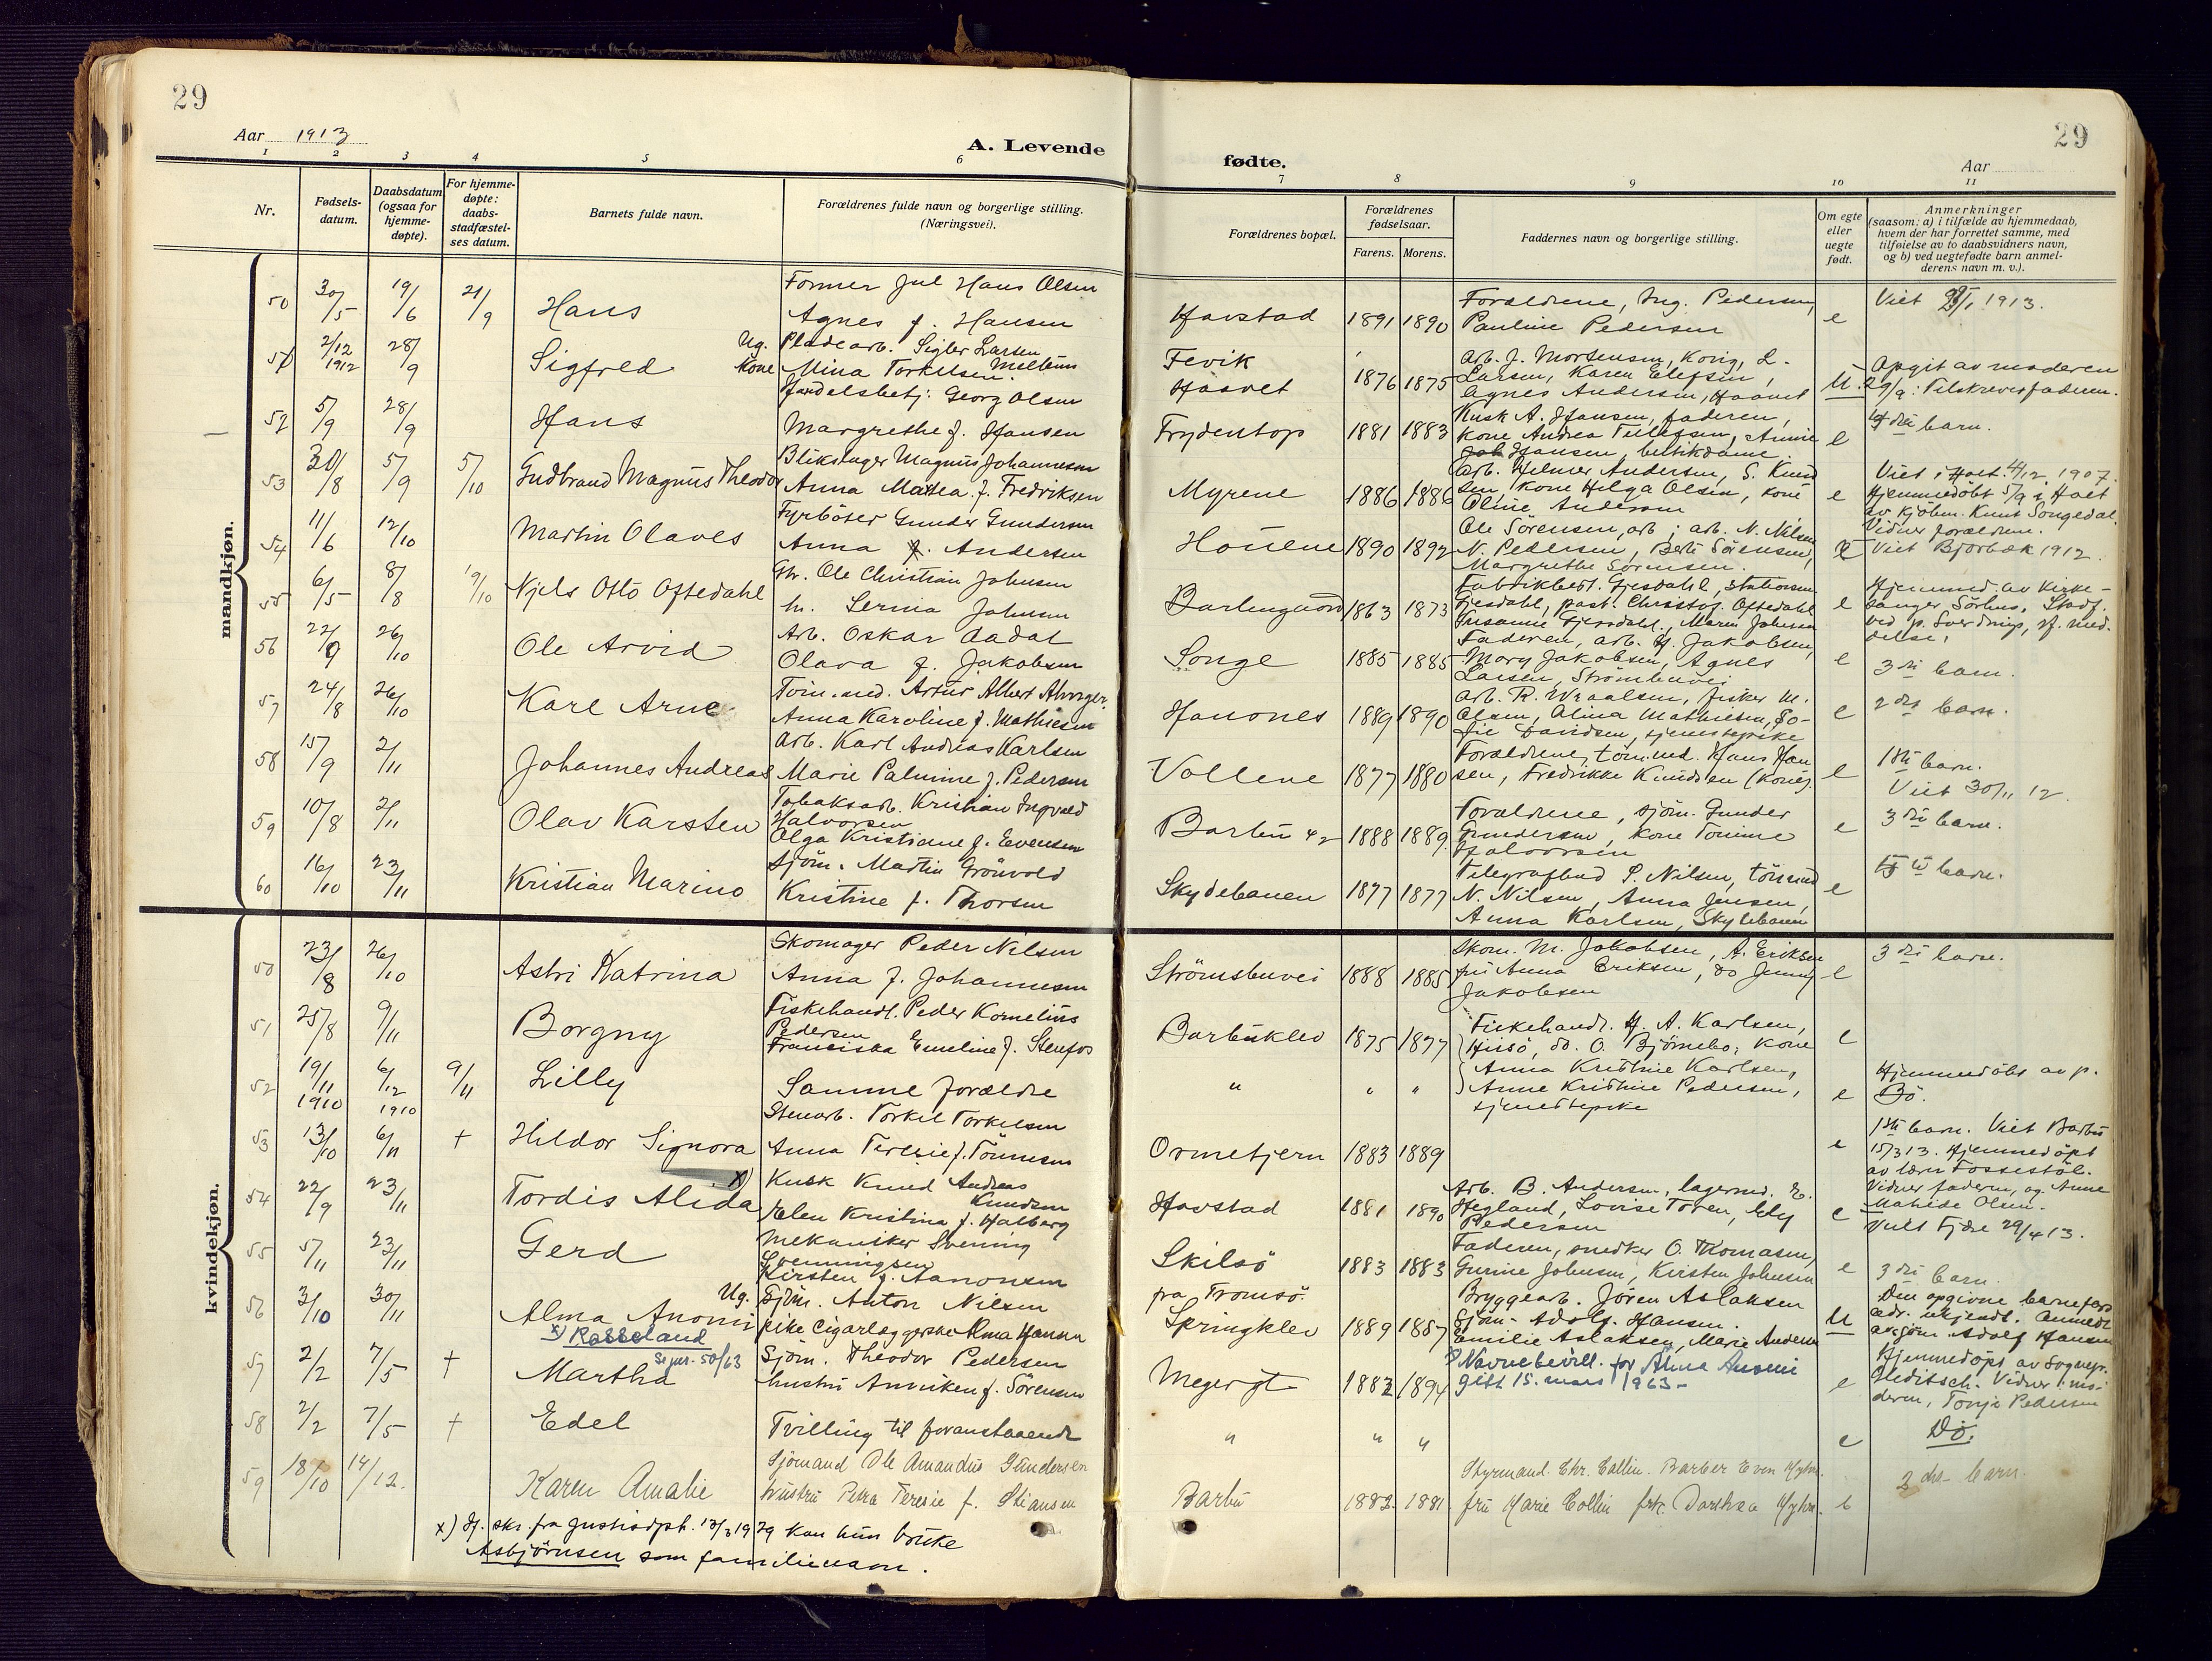 29
Aar 1913
A. Levende
1 2 3 4 5 6
Nr.
Fødsels-
datum.
Daabsdatum
(ogsaa for
hjemme-
døpte).
For hjemme-
døpte:
daabs-
stadfæstel-
ses datum.
Barnets fulde navn.
Forældrenes fulde navn og borgerlige stilling.
(Næringsvei).
mandkjøn.
50 30/5 19/6 21/9 Hans
Former Jul Hans Olsen
Agnes f. Hansen
51 2/12 1912 28/9 Sigfred
Ug. Pladearb. Sigbr Larsen
Kone Mina Torkelsen.
52 5/9 28/9 Hans
Handelsbetj: Georg Olsen
Margrethe f. Hansen
53 30/8 5/9 5/10 Gudbrand Magnus Theodor
Blikslager Magnus Johannesen
Anna Mathea f. Fredriksen
54 11/6 12/10 Martin Olaves
Fyrbøter Gunder Gundersen
Anna f. Andersen
55 6/5 8/8 19/10 Njels Otto Oftedahl
Gbr. Ole Christian Johnsen
h. Serina Johnsen
56 22/9 26/10 Ole Arvid
Arb. Oskar Aadal
Olava f. Jakobsen
57 24/8 26/10 Kare Arne
Töm.md. Artur Albert
Anna Karoline f. Mathisen
58 15/9 2/11 Johannes Andreas
Arb. Karl Andreas Karlsen
Marie Palmine f. Pedersen
59 10/8 2/11 Olav Karsten
Tobaksarb. Kristian Ingvald
Halvorsen
Olga Kristiane f. Evensen
60 16/10 23/11 Kristian Marino
Sjöm. Martin Grönvold
Kristine f. Thorsen
kvindekjøn.
50 23/8 26/10 Astri Katrina
Skomager Peder Nilsen
Anna f. Johannesen
51 25/8 9/11 Borgny
Fiskehandl. Peder Kornelius
Pedersen
Franciska Emeline f. Stenfos
52 19/11 1910 6/12 1910 9/11 Lilly
Samme forældre
53 13/10 6/11 + Hildor Signora
Stenarb. Torkel Torkelsen
Anna Teresie f. Tönnesen
54 22/9 23/11 Tordis Alida x)
Kusk Knud Andreas
Knudsen
Elen Kristina f. Halberg
55 5/11 23/11 Gerd
Mekaniker Svenning
Svenningsen
Kirsten f. Aanonsen
56 3/10 30/11 Alma Anomi
Ug. Sjöm. Anton Nilsen
pike Cigarlæggerske Alma Hansen
x) Rosseland
57 2/2 7/5 + Martha
Sjöm. Theodor Pedersen
hustru Anniken f. Sörensen
58 2/2 7/5 + Edel
Tvilling til foranstaaende
59 18/10 14/12. Karen Amalie
Sjömand Ole Amandus Gundersen
hustru Petra Teresie f. Stiansen
x) If. skr. fra Justisdpt. 12/3 1929 kan hun bruke
Asbjörnsen som familienavn.
fødte.
Aar
29
7 8 9 10 11
Forældrenes bopæl.
Forældrenes
fødselsaar.
Farens. Morens.
Faddernes navn og borgerlige stilling.
Om egte
eller
uegte
født.
Anmerkninger
(saasom: a) i tilfælde av hjemmedaab,
hvem der har forrettet samme, med
tilføielse av to daabsvidners navn,
og b) ved uegtefødte barn anmel-
derens navn m. v.).
Havstad 1891 1890
Forældrene, Ing. Pedersen,
Pauline Pedersen
e
Viet 1913.
Fevik
Haavet 1876 1875
Arb. J. Mortensen, Kong, L.
Larsen, Karen Elefsen,
Agnes Andersen, Haavet
U.
Opgit av moderen
29/9: Tilskrevet faderen.
Frydentop 1881 1883
Kusk A. Hansen, faderen,
kone Andrea Tellefsen, Annie
Hansen, butikdame.
e
4de barn.
Myrene 1886 1886
Arb. Helmer Andersen, S. Knud
sen, kone Helga Olsen, kone
Oline Andersen
e
Viet i Holt 4/12 1907.
Hjemmedöbt 5/9 i Holt
av kjöbm. Knut Songedal.
Vidner forældrene.
1890 1892
Ole Sörensen, arb; arb. N. Nilsen
N. Pedersen, Berte Sörensen,
Margrethe Sörensen.
Viet Bjorbæk 1912.
1863 1873
Fabrikbest. Gjesdahl, stationsm
Gjesdahl, past. Christof. Oftedahl
Susanne Gjesdahl, Maren Johnsen
e
Hjemmed. av Kirke-
sanger Sörhus. Stadf.
ved p. Sverdrup, if. med-
delse.
Songe 1885 1885
Faderen, arb. H. Jakobsen,
Mary Jakobsen, Agnes
Larsen, Strömsbuvei
e
3die barn.
Havsnes 1889 1890
Arb. R. Wraalsen, fisker M.
Olsen, Alina Mathiesen, So-
fie Davidsen, tjenestepike
e
2det barn.
Vollene 1877 1880
Forældrene, töm.md. Hans Han
sen, Fredrikke Knudsen (kone).
e
1ste barn.
Viet 30/11 12.
Barbu 42 1888 1889
Forældrene, sjöm. Gunder
Gundersen, kone Tomine
Halvorsen
e
3die barn.
Skydebanen 1877 1877
Telegrafbud S. Nilsen, tömmd
N. Nilsen, Anna Jensen,
Anna Karlsen, Skydebanen
e
barn.
Strömsbuvei 1888 1885
Skom. M. Jakobsen, A. Eriksen
fru Anna Eriksen, do Jenny
Jakobsen
e
3die barn.
Barbuklev 1875 1877
Fiskehandl. H. A. Karlsen,
Hisö, do. O. Björnebo; kone
Anna Kristine Karlsen,
e
" " "
Anne Kristine Pedersen,
tjenestepike
e
Hjemmedöbt av p.
Bö.
Ormetjern 1883 1889
e
1ste barn. Viet Barbu
15/3 13. Hjemmedöpt
av lærer Fossestöl.
Vidner faderen, og Anne
Matilde Olsen.
Havstad 1881 1890
Arb. B. Andersen, lagermd. E.
Hegland, Lovise Toren, Ely
Pedersen
e
Viet Fjære 29/4 13.
Skilsö 1883 1883
Faderen, snedker O. Thomasen,
Gurine Johnsen, Kirsten Johnsen
e
3die barn.
fra Tromsö.
Springklev 1889 1887
Bryggearb. Jören Aslaksen
Sjöm. Adolf Hansen.
Emilie Aslaksen, Marie Andersen
U
Den opgivne barnefars
adr. ukjendt. Anmeldt
av sjöm. Adolf Hansen
x) Navnebevill. for Alma Anomi
gitt 15. mars 1963-
1882 1894
e
Hjemmedöpt av sognepr.
Heditsch. Vidner: mo-
deren, Tonje Pedersen
" " " e
Do.
Barbu 1882. 1881.
Styrmand. Chr. Collin. Barber Even
fru Marie Collin frk. Dorthea
e
2det barn.